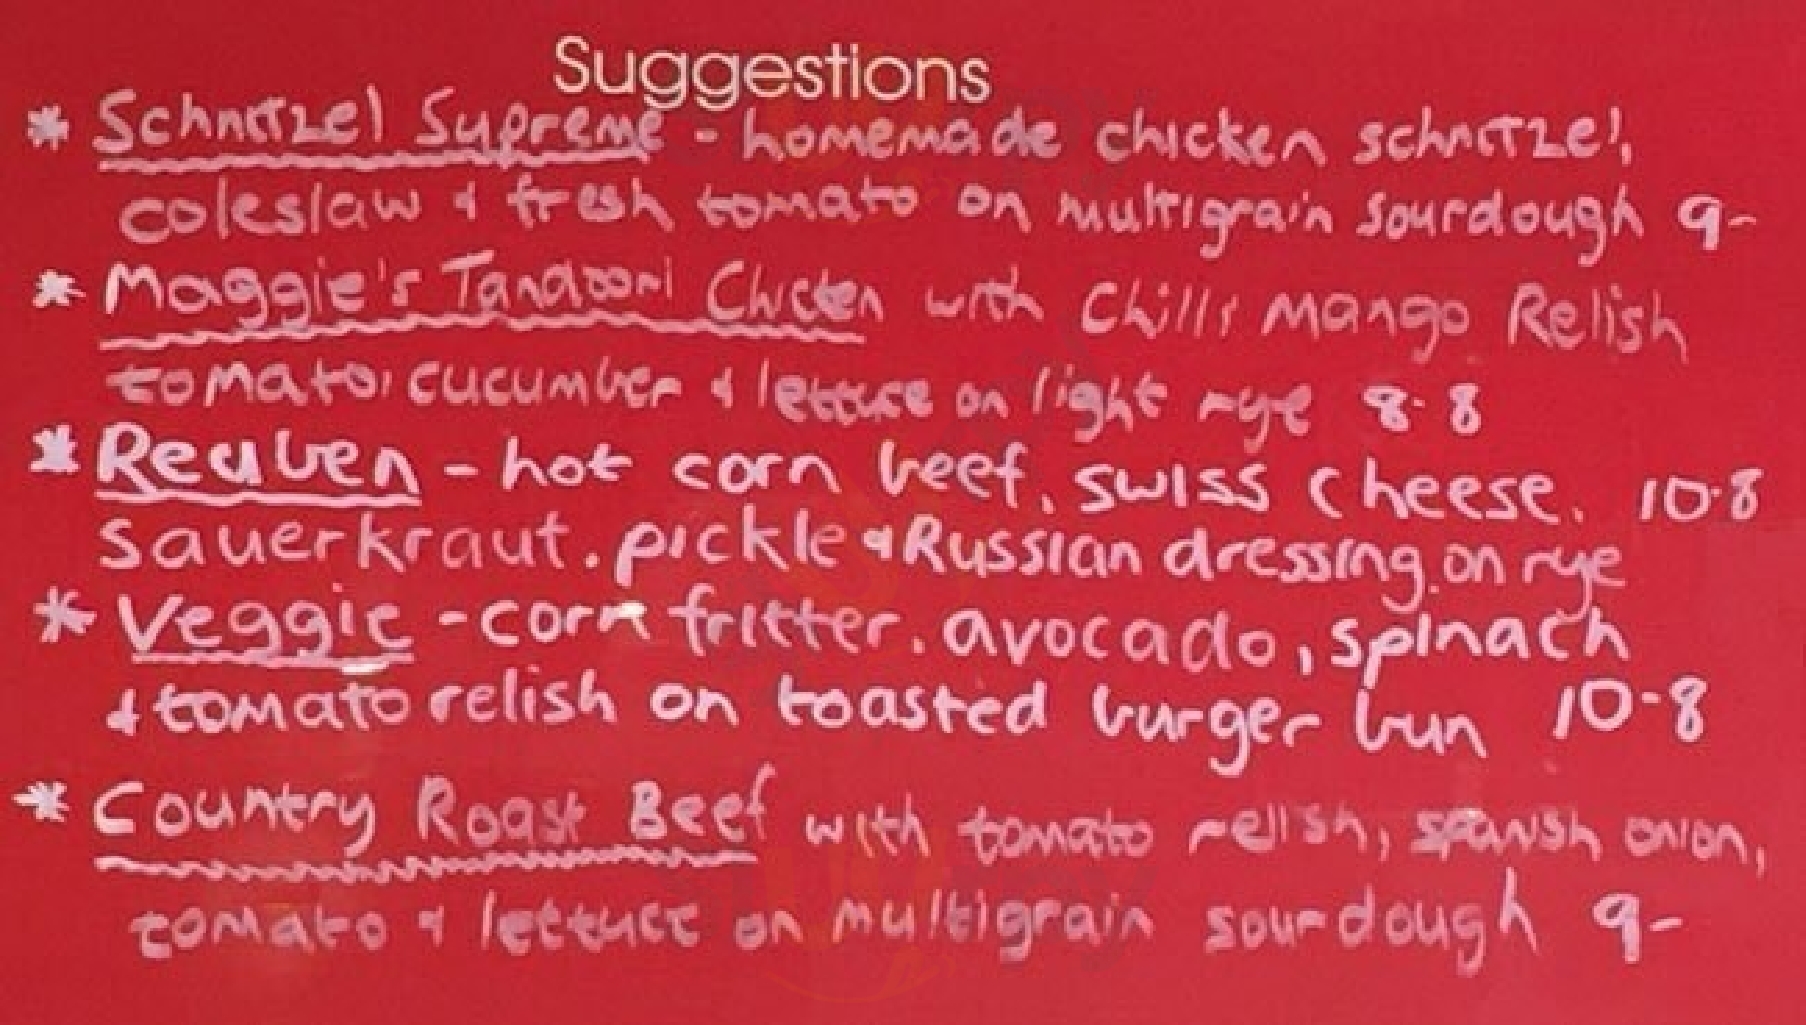 Suggestions
* Schnitzel Supreme - homemade chicken schnitzel,
coleslaw & fresh tomato on multigrain sourdough 9-
* Maggie's Tandoori Chicken with Chilli Mango Relish
tomato, cucumber & lettuce on light rye 8.8
* Reuben - hot corn beef, swiss cheese, 10.8
sauerkraut, pickle & Russian dressing on rye
* Veggie - corn fritter, avocado, spinach
& tomato relish on toasted burger bun 10-8
* Country Roast Beef with tomato relish, spanish onion,
tomato & lettuce on multigrain sourdough 9-